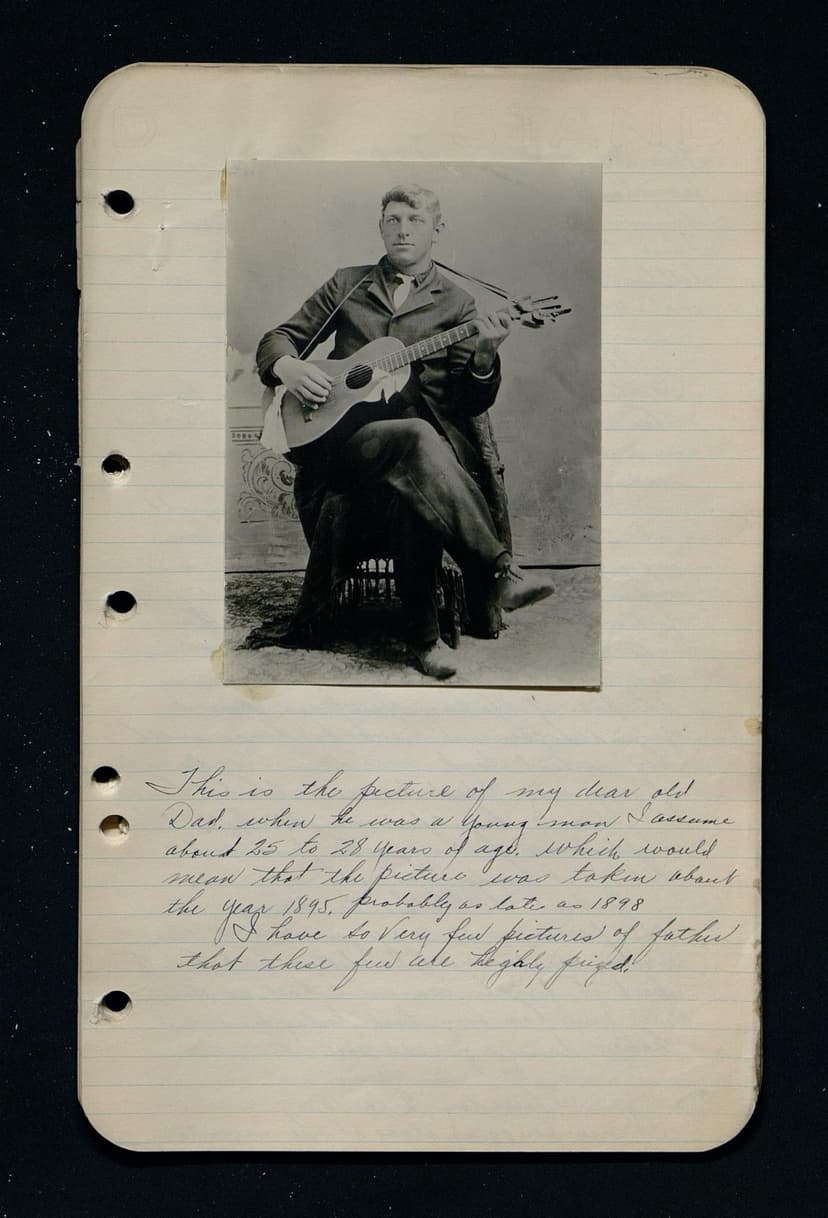 This is the picture of my dear old
Dad, when he was a young man I assume
about 25 to 28 years of age, which would
mean that the picture was taken about
the year 1895, probably as late as 1898
I have so very few pictures of father
that these few are heghly prized.